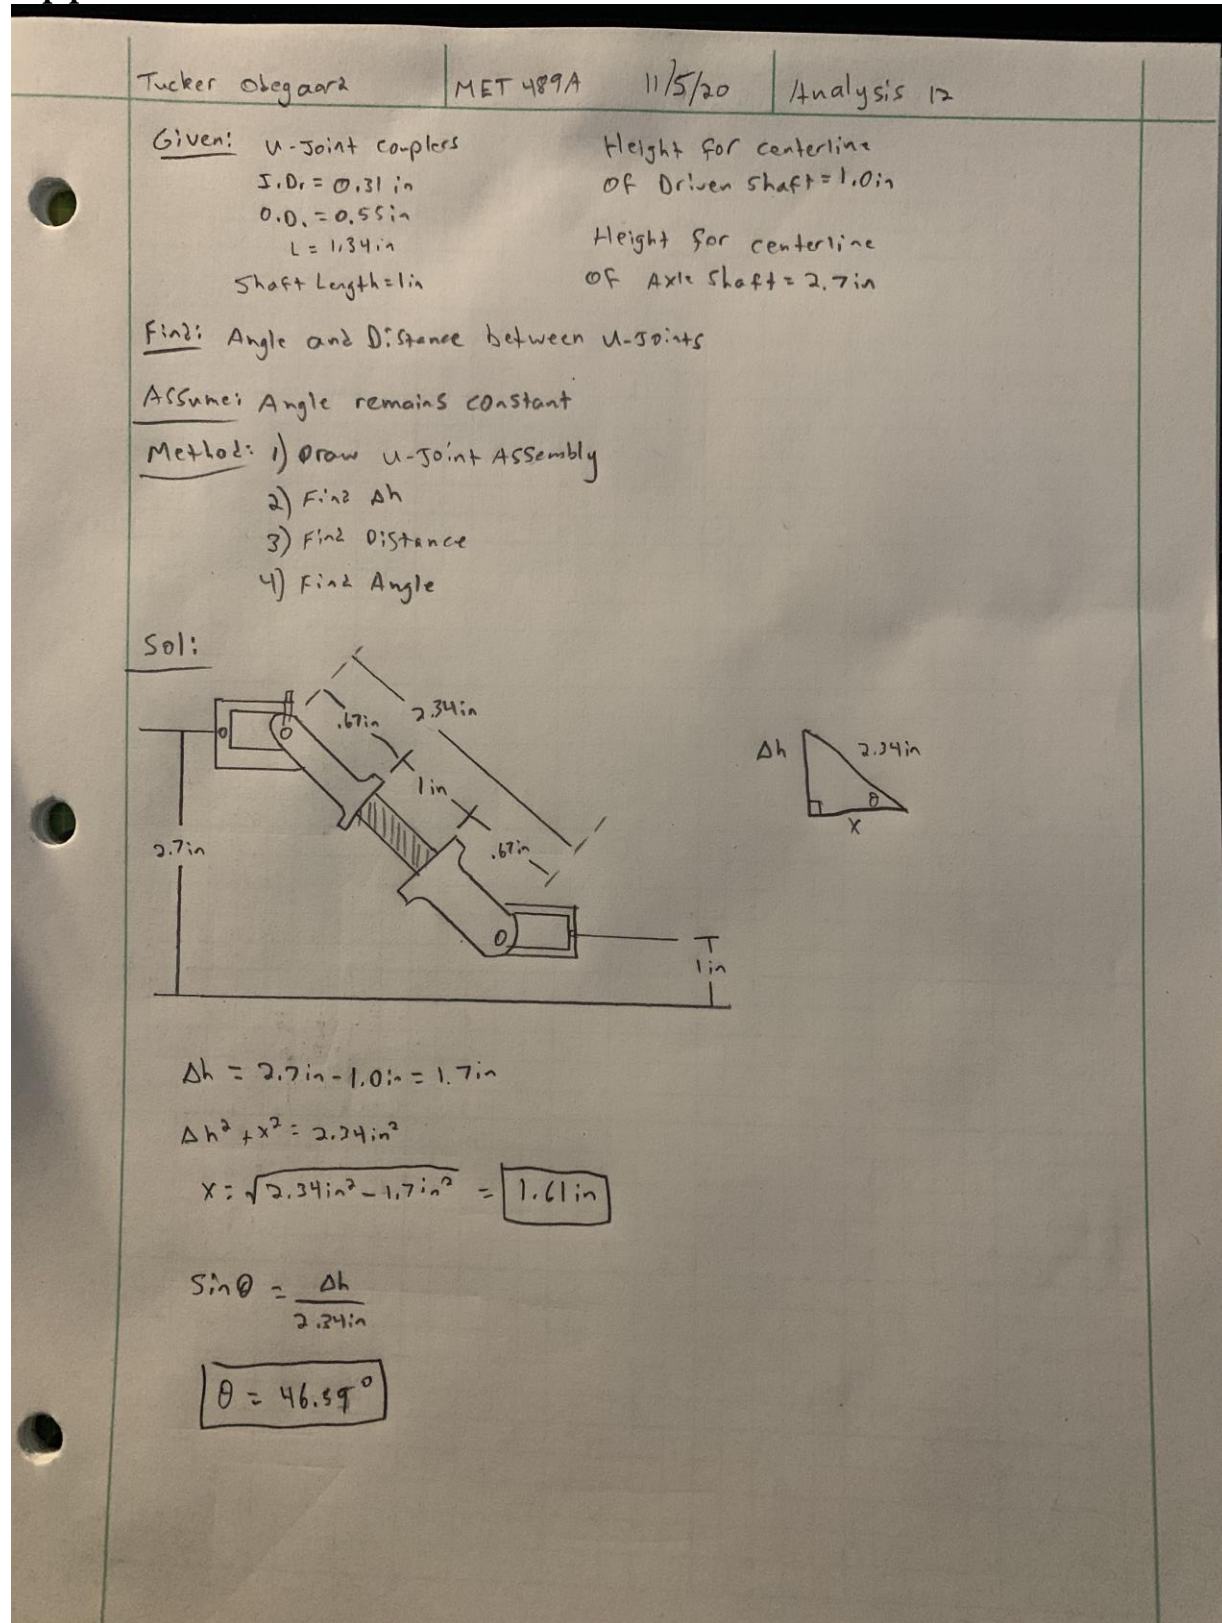 Tucker Obegaard MET 489A 11/5/20 Analysis 12
Given: U-Joint Couplers
I.D. = 0.31 in
O.D. = 0.55in
L = 1.34in
Shaft Length = 1in
Height for centerline
of Driven Shaft = 1.0in
Height for centerline
of Axle Shaft = 2.7in
Find: Angle and Distance between U-Joints
Assume: Angle remains constant
Method: 1) Draw U-Joint Assembly
2) Find Δh
3) Find Distance
4) Find Angle
Sol:
.67in
2.34in
1in
.67in
2.7in
1in
Δh
2.34in
θ
x
Δh = 2.7in - 1.0in = 1.7in
Δh² + x² = 2.34in²
x = √2.34in² - 1.7in² = 1.61in
Sinθ = Δh
2.34in
θ = 46.59°